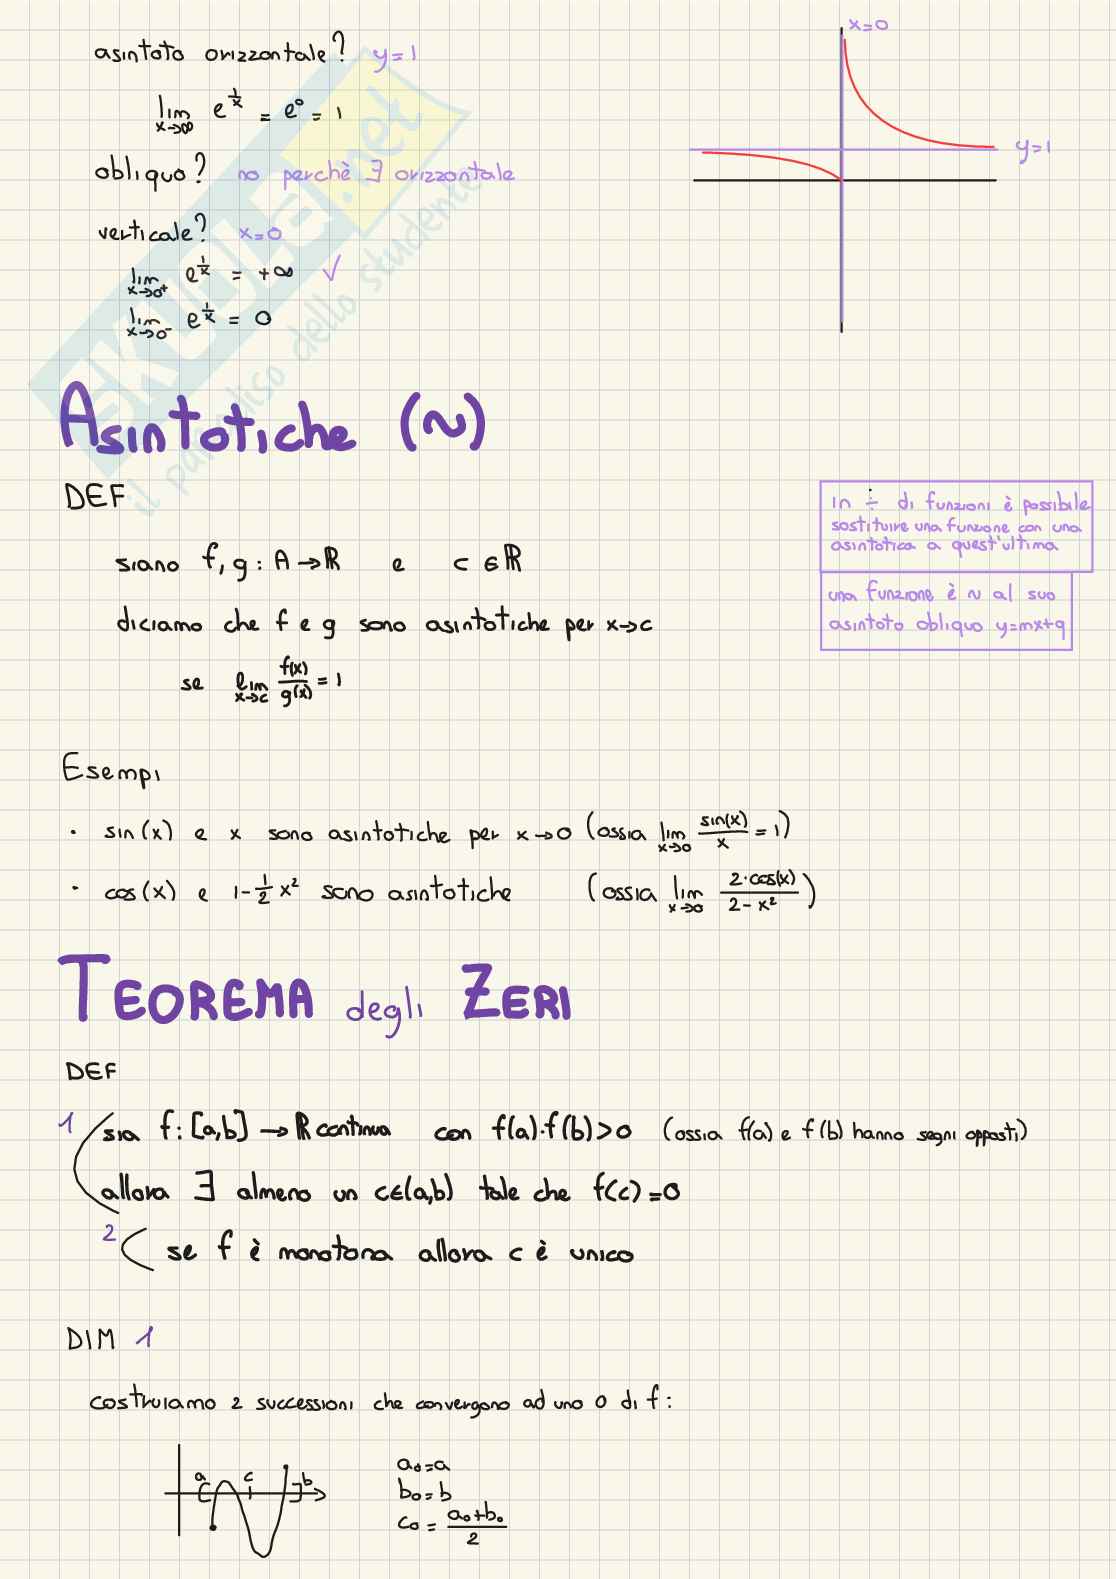 asintoto orizzontale? y=1
lim x→∞ e^(1/x) = e⁰ = 1
obliquo? no perchè ∃ orizzontale
verticale? x=0
lim x→0⁺ e^(1/x) = +∞ ✓
lim x→0⁻ e^(1/x) = 0
x=0
y=1
SKUOLA.net
il paradiso dello studente
Asintotiche (~)
DEF
siano f, g : A → ℝ e c ∈ ℝ
diciamo che f e g sono asintotiche per x→c
se lim x→c f(x)/g(x) = 1
in ÷ di funzioni è possibile
sostituire una funzione con una
asintotica a quest'ultima
una funzione è ~ al suo
asintoto obliquo y=mx+q
Esempi
• sin(x) e x sono asintotiche per x→0 (ossia lim x→0 sin(x)/x = 1)
• cos(x) e 1-1/2 x² sono asintotiche (ossia lim x→0 2·cos(x)/2-x²)
TEOREMA degli ZERI
DEF
1 sia f: [a,b] → ℝ continua con f(a)·f(b)>0 (ossia f(a) e f(b) hanno segni opposti)
allora ∃ almeno un c∈(a,b) tale che f(c)=0
2 se f è monotona allora c è unico
DIM 1
costruiamo 2 successioni che convergono ad uno 0 di f:
a c b
a₀=a
b₀=b
c₀ = (a₀+b₀)/2